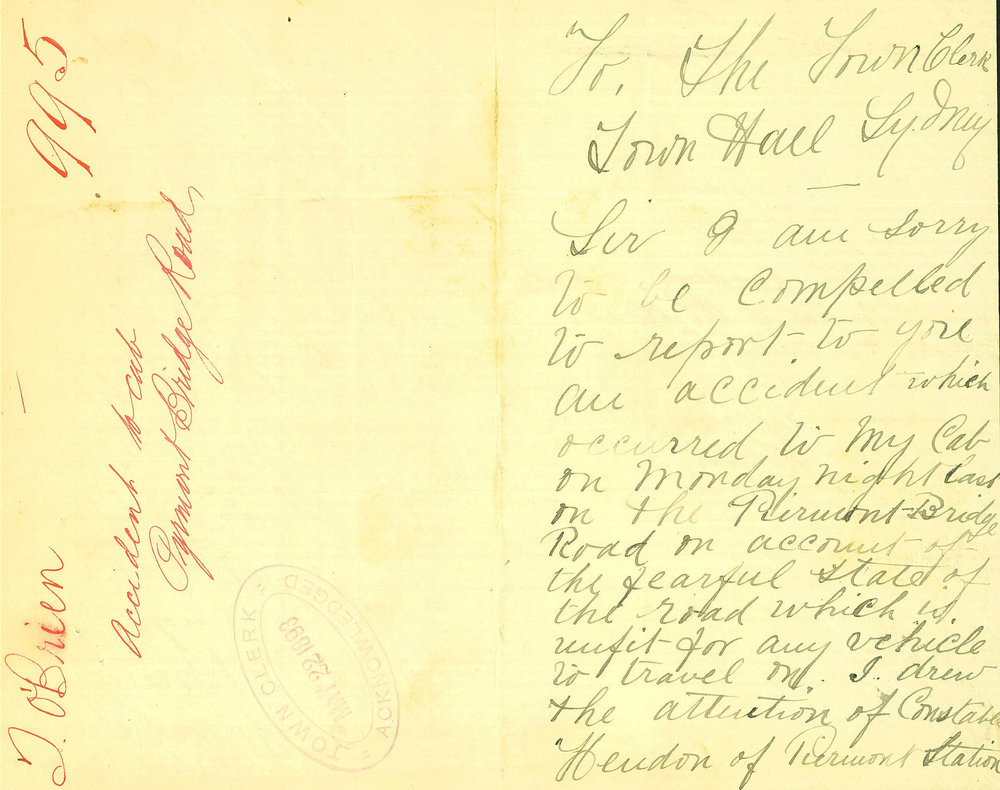 T. O'Brien 995
Accident to cab
Pyrmont Bridge Road,
TOWN CLERK
MAY 22 1893
ACKNOWLEDGED
To, The Town Clerk
Town Hall Sydney
Sir I am sorry
to be compelled
to report to you
an accident which
occurred to My Cab
on Monday night last
on the Piermont Bridge
Road on account of
the fearful state of
the road which is
unfit for any vehicle
to travel on. I. drew
the attention of Constable
Hendon of Piermont Station